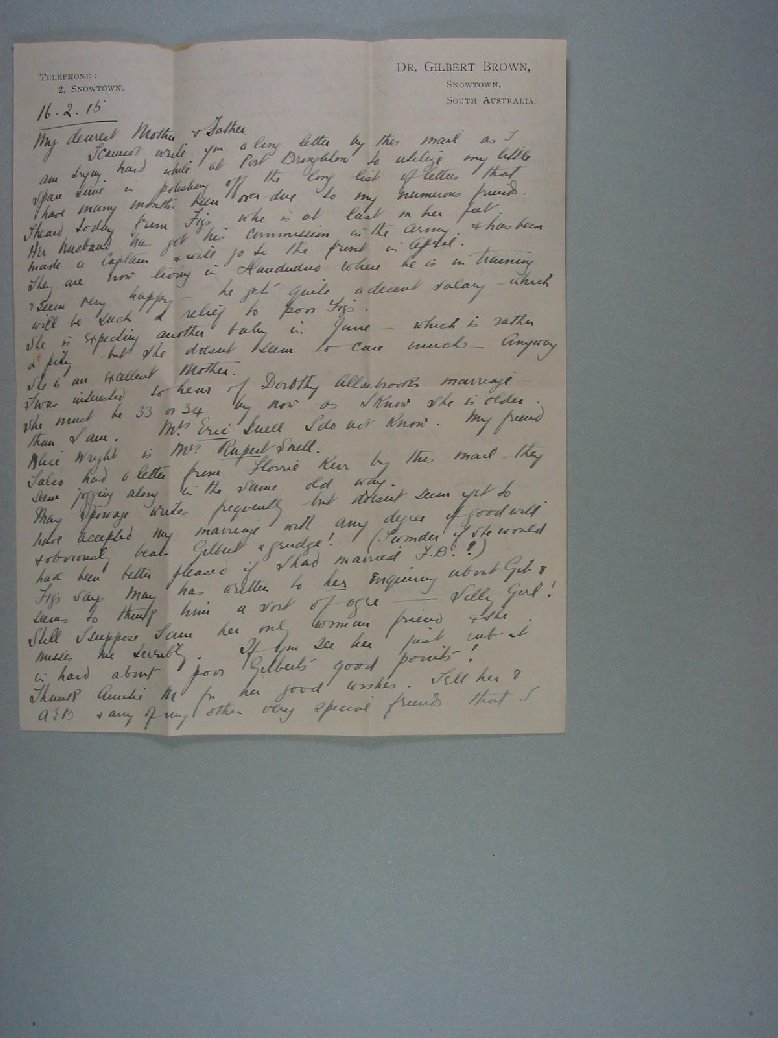 TELEPHONE:
2, SNOWTOWN.
DR. GILBERT BROWN,
SNOWTOWN,
SOUTH AUSTRALIA.
16.2.15
My dearest Mother & Father
I cannot write you a long letter by this mail as I
am trying hard while at Port Broughton to utilize my little
spare time in polishing off the long list of letters that
have many months been over-due to my numerous friends.
I heard today from Figs who is at last on her feet.
Her husband has got his commission in the army & has been
made a Captain & will go to the front in April.
They are now living in where he is in training
& seem very happy - he gets quite a decent salary - which
will be such a relief to poor Figs.
She is expecting another baby in June - which is rather
a pity but she doesnt seem to care much - Anyway
she is an excellent Mother.
I was interested to hear of Dorothy Allabrooks marriage -
She must be 33 or 34 by now as I know she is older
than I am. Mrs Eric Snell I do not know. My friend
Alice Wright is Mrs Rupert Snell.
I also had a letter from Florrie Kerr by this mail - they
seem jogging along in the same old way.
May writes frequently but doesnt seem yet to
have accepted my marriage with any degree of goodwill
& obviously bears Gilbert a grudge! (I wonder if she would
had been better pleased if I had married F.B.!?)
Figs says May has written to her enquiring about Gib &
seems to think him a sort of ogre — Silly Girl!
Still I suppose I am her one woman friend & she
misses me terribly. If you see her just rub it
in hard about poor Gilbert's good points!
Thank Auntie M for her good wishes. Tell her &
& any of my other very special friends that I